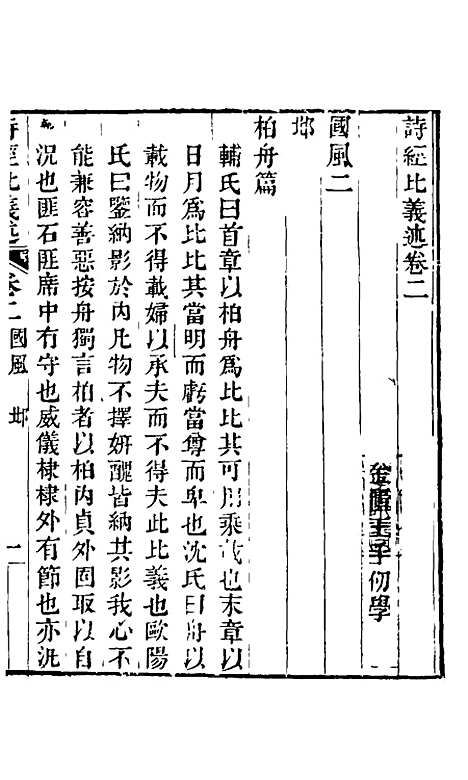 詩經比義述卷二
仞學
國風二
邶
柏舟篇
輔氏曰首章以柏舟爲比比其可用乘載也末章以
日月爲比比其當明而虧當尊而卑也沈氏曰舟以
載物而不得載婦以承夫而不得夫此比義也歐陽
氏曰鑒納影於內凡物不擇妍醜皆納其影我心不
能兼容善惡按舟獨言柏者以柏內貞外固取以自
況也匪石匪席中有守也威儀棣棣外有節也亦汎
詩經比義述 卷二 國風 邶 一